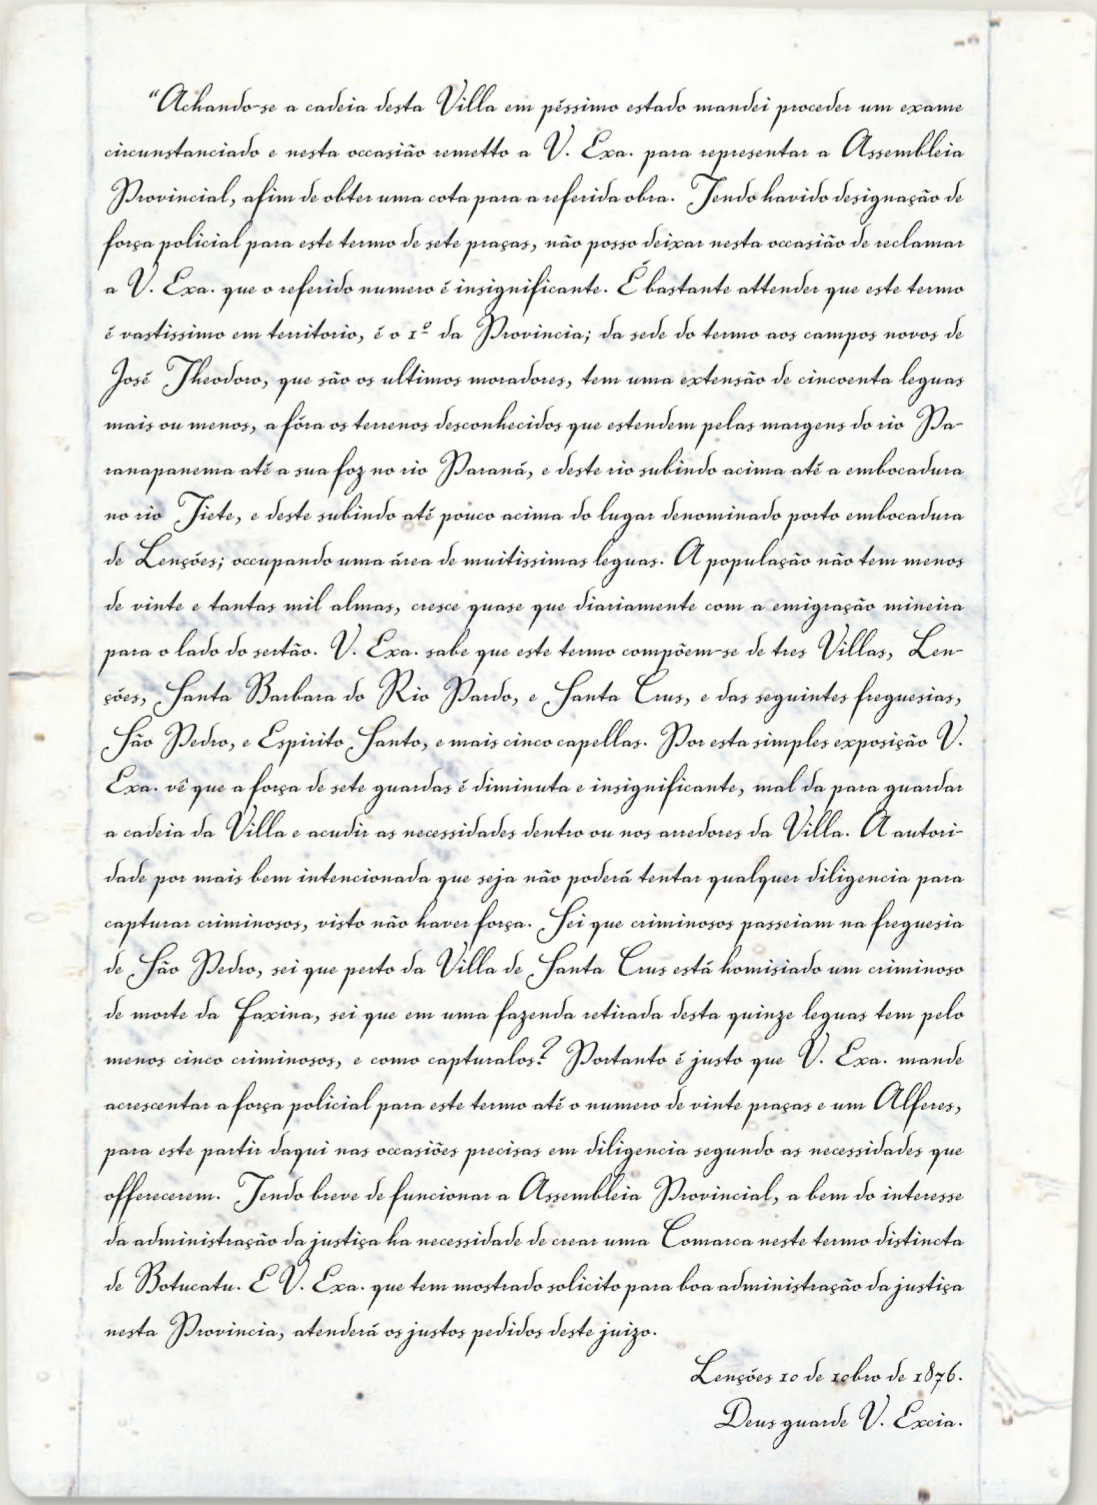 "Achando-se a cadeia desta Villa em péssimo estado mandei proceder um exame
circunstanciado e nesta occasião remetto a V. Exa. para representar a Assembleia
Provincial, afim de obter uma cota para a referida obra. Tendo havido designação de
força policial para este termo de sete praças, não posso deixar nesta occasião de reclamar
a V. Exa. que o referido numero é insignificante. É bastante attender que este termo
é vastissimo em territorio, é o 1º da Provincia; da sede do termo aos campos novos de
José Theodoro, que são os ultimos moradores, tem uma extensão de cincoenta leguas
mais ou menos, a fóra os terrenos desconhecidos que estendem pelas margens do rio Pa-
ranapanema até a sua foz no rio Paraná, e deste rio subindo acima até a embocadura
no rio Tiete, e deste subindo até pouco acima do lugar denominado porto embocadura
de Lenções; occupando uma área de muitissimas leguas. A população não tem menos
de vinte e tantas mil almas, cresce quase que diariamente com a emigração mineira
para o lado do sertão. V. Exa. sabe que este termo compõem-se de tres Villas, Len-
ções, Santa Barbara do Rio Pardo, e Santa Crus, e das seguintes freguesias,
São Pedro, e Espirito Santo, e mais cinco capellas. Por esta simples exposição V.
Exa. vê que a força de sete guardas é diminuta e insignificante, mal da para guardar
a cadeia da Villa e acudir as necessidades dentro ou nos arredores da Villa. A autori-
dade por mais bem intencionada que seja não poderá tentar qualquer diligencia para
capturar criminosos, visto não haver força. Sei que criminosos passeiam na freguesia
de São Pedro, sei que perto da Villa de Santa Crus está homisiado um criminoso
de morte da Faxina, sei que em uma fazenda retirada desta quinze leguas tem pelo
menos cinco criminosos, e como capturalos? Portanto é justo que V. Exa. mande
acrescentar a força policial para este termo até o numero de vinte praças e um Alferes,
para este partir daqui nas occasiões precisas em diligencia segundo as necessidades que
offerecerem. Tendo breve de funcionar a Assembleia Provincial, a bem do interesse
da administração da justiça ha necessidade de crear uma Comarca neste termo distincta
de Botucatu. E V. Exa. que tem mostrado solicito para boa administração da justiça
nesta Provincia, atenderá os justos pedidos deste juizo.
Lenções 10 de 10bro de 1876.
Deus guarde V. Excia.